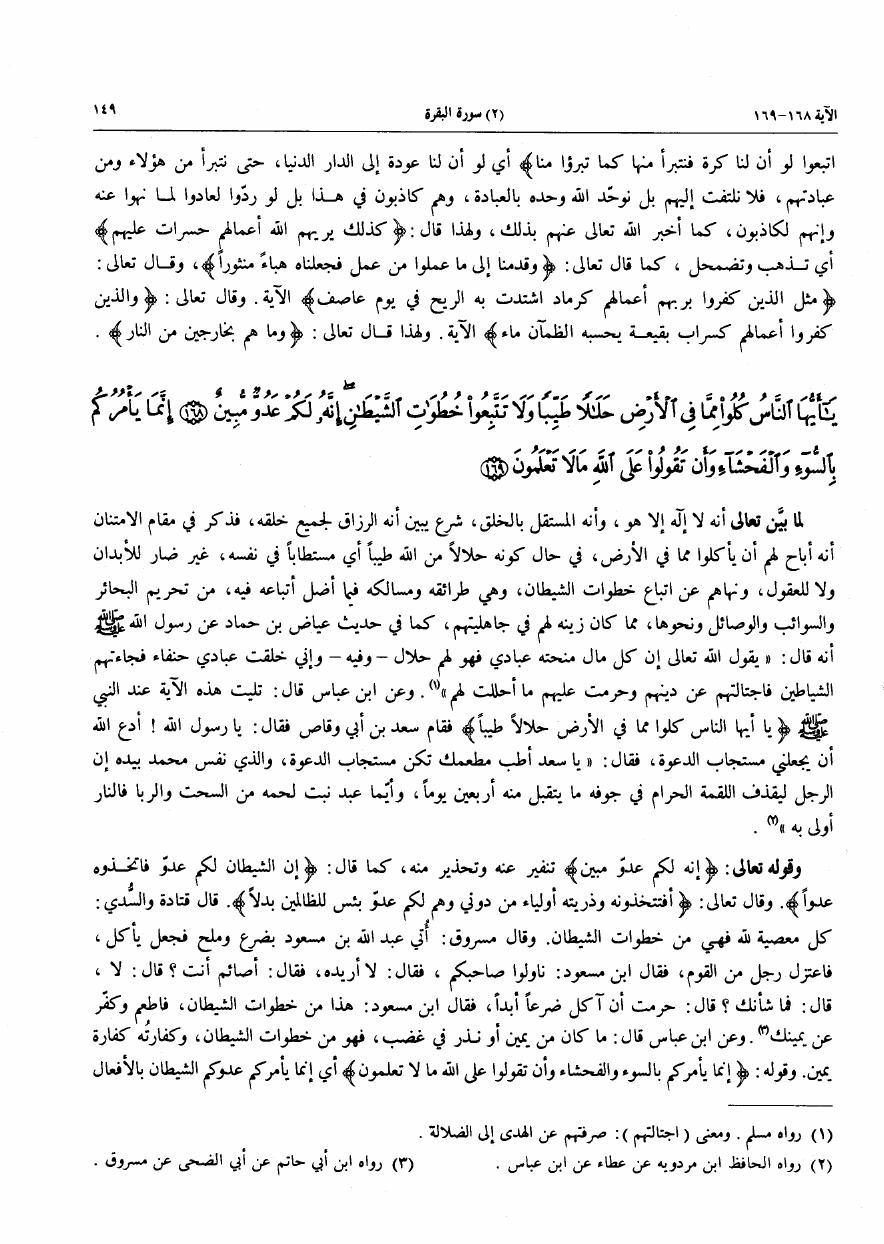 الآية ١٦٨-١٦٩
(٢) سورة البقرة
١٤٩
اتبعوا لو أن لنا كرة فنتبرأ منها كما تبرؤا منا﴾ أي لو أن لنا عودة إلى الدار الدنيا، حتى نتبرأ من هؤلاء ومن
عبادتهم، فلا نلتفت إليهم بل نوحّد الله وحده بالعبادة، وهم كاذبون في هـذا بل لو ردّوا لعادوا لمـا نهوا عنه
وإنهم لكاذبون، كما أخبر الله تعالى عنهم بذلك، ولهذا قال: ﴿كذلك يريهم الله أعمالهم حسرات عليهم﴾
أي تـذهب وتضمحل ، كما قال تعالى: ﴿وقدمنا إلى ما عملوا من عمل فجعلناه هباءً منثوراً﴾، وقـال تعالى:
﴿مثل الذين كفروا بربهم أعمالهم كرماد اشتدت به الريح في يوم عاصف﴾ الآية. وقال تعالى: ﴿والذين
كفروا أعمالهم كسراب بقيعـة يحسبه الظمآن ماء﴾ الآية. ولهذا قـال تعالى: ﴿وما هم بخارجين من النار﴾ .
يَـٰٓأَيُّهَا ٱلنَّاسُ كُلُوا۟ مِمَّا فِى ٱلْأَرْضِ حَلَـٰلًا طَيِّبًا وَلَا تَتَّبِعُوا۟ خُطُوَٰتِ ٱلشَّيْطَـٰنِ ۚ إِنَّهُۥ لَكُمْ عَدُوٌّ مُّبِينٌ ﴿١٦٨﴾ إِنَّمَا يَأْمُرُكُم
بِٱلسُّوٓءِ وَٱلْفَحْشَآءِ وَأَن تَقُولُوا۟ عَلَى ٱللَّهِ مَا لَا تَعْلَمُونَ ﴿١٦٩﴾
لما بيَّن تعالى أنه لا إلّه إلا هو ، وأنه المستقل بالخلق، شرع يبين أنه الرزاق لجميع خلقه، فذكر في مقام الامتنان
أنه أباح لهم أن يأكلوا مما في الأرض، في حال كونه حلالاً من الله طيباً أي مستطاباً في نفسه، غير ضار للأبدان
ولا للعقول، ونهاهم عن اتباع خطوات الشيطان، وهي طرائقه ومسالكه فيما أضل أتباعه فيه، من تحريم البحائر
والسوائب والوصائل ونحوها، مما كان زينه لهم في جاهليتهم، كما في حديث عياض بن حماد عن رسول الله ﷺ
أنه قال: « يقول الله تعالى إن كل مال منحته عبادي فهو لهم حلال – وفيه – وإني خلقت عبادي حنفاء فجاءتهم
الشياطين فاجتالتهم عن دينهم وحرمت عليهم ما أحللت لهم»(١). وعن ابن عباس قال: تليت هذه الآية عند النبي
ﷺ ﴿ يا أيها الناس كلوا مما في الأرض حلالاً طيباً﴾ فقام سعد بن أبي وقاص فقال: يا رسول الله ! أدع الله
أن يجعلني مستجاب الدعوة، فقال: « يا سعد أطب مطعمك تكن مستجاب الدعوة، والذي نفس محمد بيده إن
الرجل ليقذف اللقمة الحرام في جوفه ما يتقبل منه أربعين يوماً، وأيّما عبد نبت لحمه من السحت والربا فالنار
أولى به »(٢) .
وقوله تعالى: ﴿إنه لكم عدوّ مبين﴾ تنفير عنه وتحذير منه، كما قال: ﴿إن الشيطان لكم عدوّ فاتخـذوه
عدواً﴾. وقال تعالى: ﴿أفتتخذونه وذريته أولياء من دوني وهم لكم عدوّ بئس للظالمين بدلاً﴾. قال قتادة والسُّدي:
كل معصية لله فهي من خطوات الشيطان. وقال مسروق: أُتي عبد الله بن مسعود بضرع وملح فجعل يأكل ،
فاعتزل رجل من القوم، فقال ابن مسعود: ناولوا صاحبكم ، فقال: لا أريده، فقال: أصائم أنت؟ قال: لا ،
قال: فما شأنك؟ قال: حرمت أن آكل ضرعاً أبداً، فقال ابن مسعود: هذا من خطوات الشيطان، فاطعم وكفّر
عن يمينك(٣). وعن ابن عباس قال: ما كان من يمين أو نـذر في غضب، فهو من خطوات الشيطان، وكفارتُه كفارة
يمين. وقوله: ﴿إنما يأمركم بالسوء والفحشاء وأن تقولوا على الله ما لا تعلمون﴾ أي إنما يأمركم عدوكم الشيطان بالأفعال
(١) رواه مسلم . ومعنى (اجتالتهم): صرفتهم عن الهدى إلى الضلالة .
(٢) رواه الحافظ ابن مردويه عن عطاء عن ابن عباس .
(٣) رواه ابن أبي حاتم عن أبي الضحى عن مسروق .